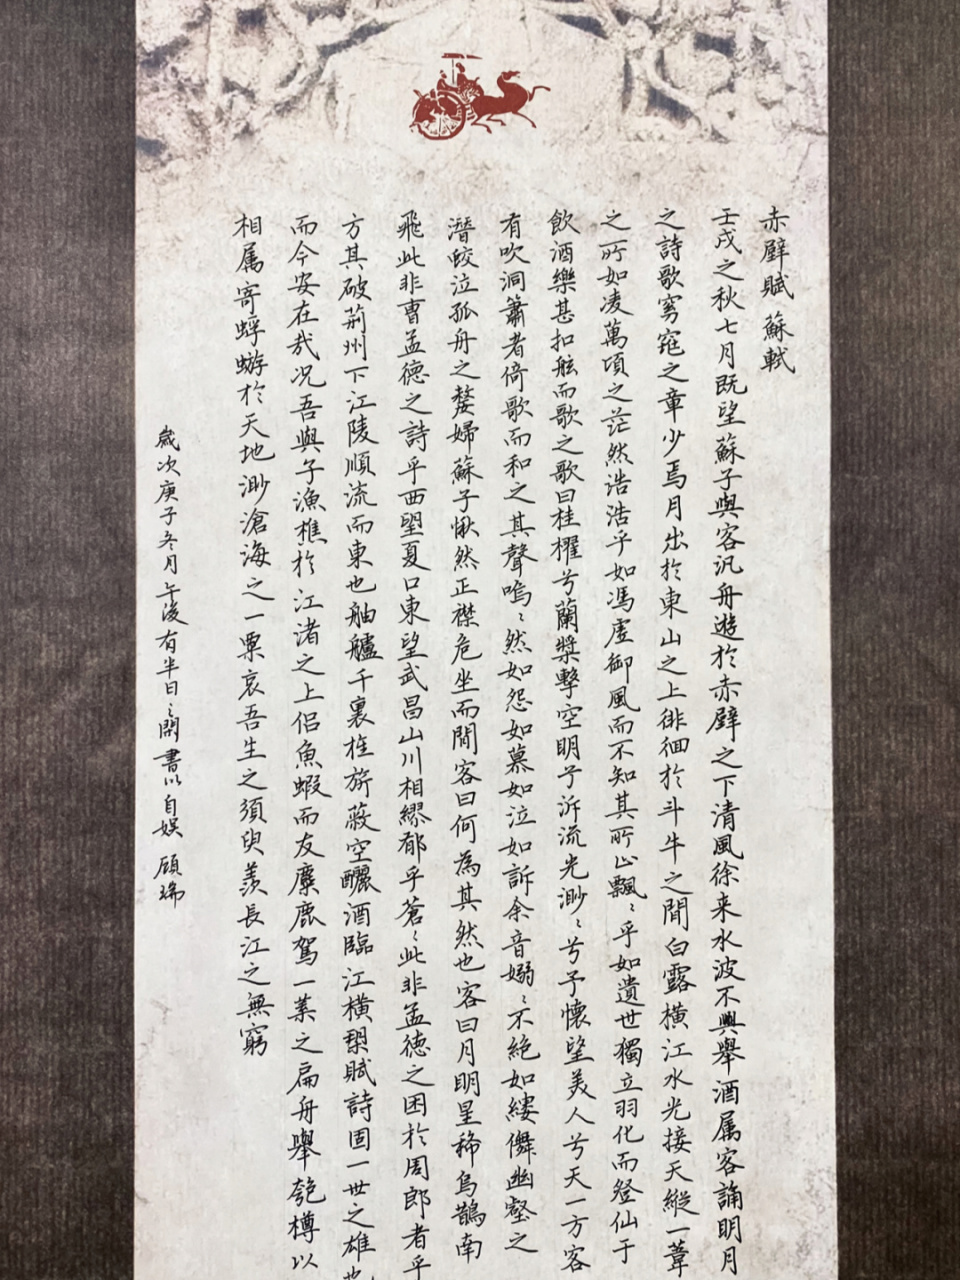 赤壁賦 蘇軾
壬戌之秋七月既望蘇子與客汎舟遊於赤壁之下清風徐来水波不興舉酒属客誦明月
之詩歌窈窕之章少焉月出於東山之上徘徊於斗牛之間白露横江水光接天縱一葦
之所如凌萬頃之茫然浩浩乎如馮虚御風而不知其所止飄〻乎如遺世獨立羽化而登仙于
飲酒樂甚扣舷而歌之歌曰桂櫂兮蘭槳擊空明兮泝流光渺〻兮予懷望美人兮天一方客
有吹洞簫者倚歌而和之其聲嗚〻然如怨如慕如泣如訴余音嫋〻不絶如縷儛幽壑之
潛蛟泣孤舟之嫠婦蘇子愀然正襟危坐而問客曰何為其然也客曰月明星稀烏鵲南
飛此非曹孟德之詩乎西望夏口東望武昌山川相繆郁乎蒼〻此非孟德之困於周郎者乎
方其破荊州下江陵順流而東也舳艫千裏旌旂蔽空釃酒臨江横槊賦詩固一世之雄也
而今安在哉况吾與子漁樵於江渚之上侣魚蝦而友麋鹿駕一葉之扁舟舉匏樽以
相属寄蜉蝣於天地渺滄海之一粟哀吾生之須臾羨長江之無窮
歲次庚子冬月午後有半日〻閑書以自娱 顧瑞